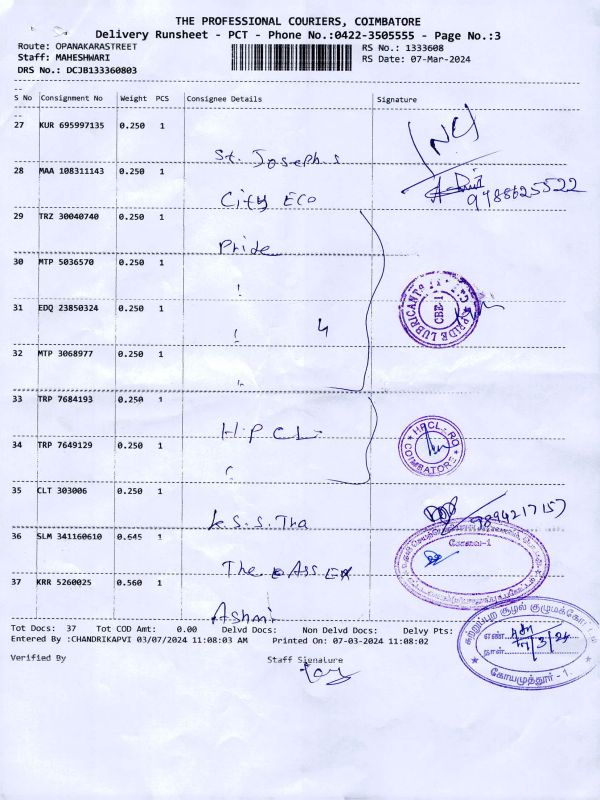 THE PROFESSIONAL COURIERS, COIMBATORE
Delivery Runsheet - PCT - Phone No.:0422-3505555 - Page No.:3
Route: OPANAKARASTREET
RS No.: 1333608
Staff: MAHESHWARI
RS Date: 07-Mar-2024
DRS No.: DCJB133360803
S No Consignment No Weight PCS Consignee Details Signature
27 KUR 695997135 0.250 1 St. Josephs
28 MAA 108311143 0.250 1 City Eco
9988625522
29 TRZ 30040740 0.250 1 Pride
30 MTP 5036570 0.250 1
31 EDQ 23850324 0.250 1
4
PRIDE LUBRICANTS
CBE-1
32 MTP 3068977 0.250 1
33 TRP 7684193 0.250 1 H.P.CL
34 TRP 7649129 0.250 1
HPCL-RO
COIMBATORE
35 CLT 303006 0.250 1 K.S.S. Tha
9894217157
36 SLM 341160610 0.645 1 The Ass. Ex
கோவை-1
37 KRR 5260025 0.560 1 Ashmi
Tot Docs: 37 Tot COD Amt: 0.00 Delvd Docs: Non Delvd Docs: Delvy Pts:
Entered By :CHANDRIKAPVI 03/07/2024 11:08:03 AM Printed On: 07-03-2024 11:08:02
Verified By Staff Signature
எண்
நாள் 7/3/24
கோயமுத்தூர் - 1.